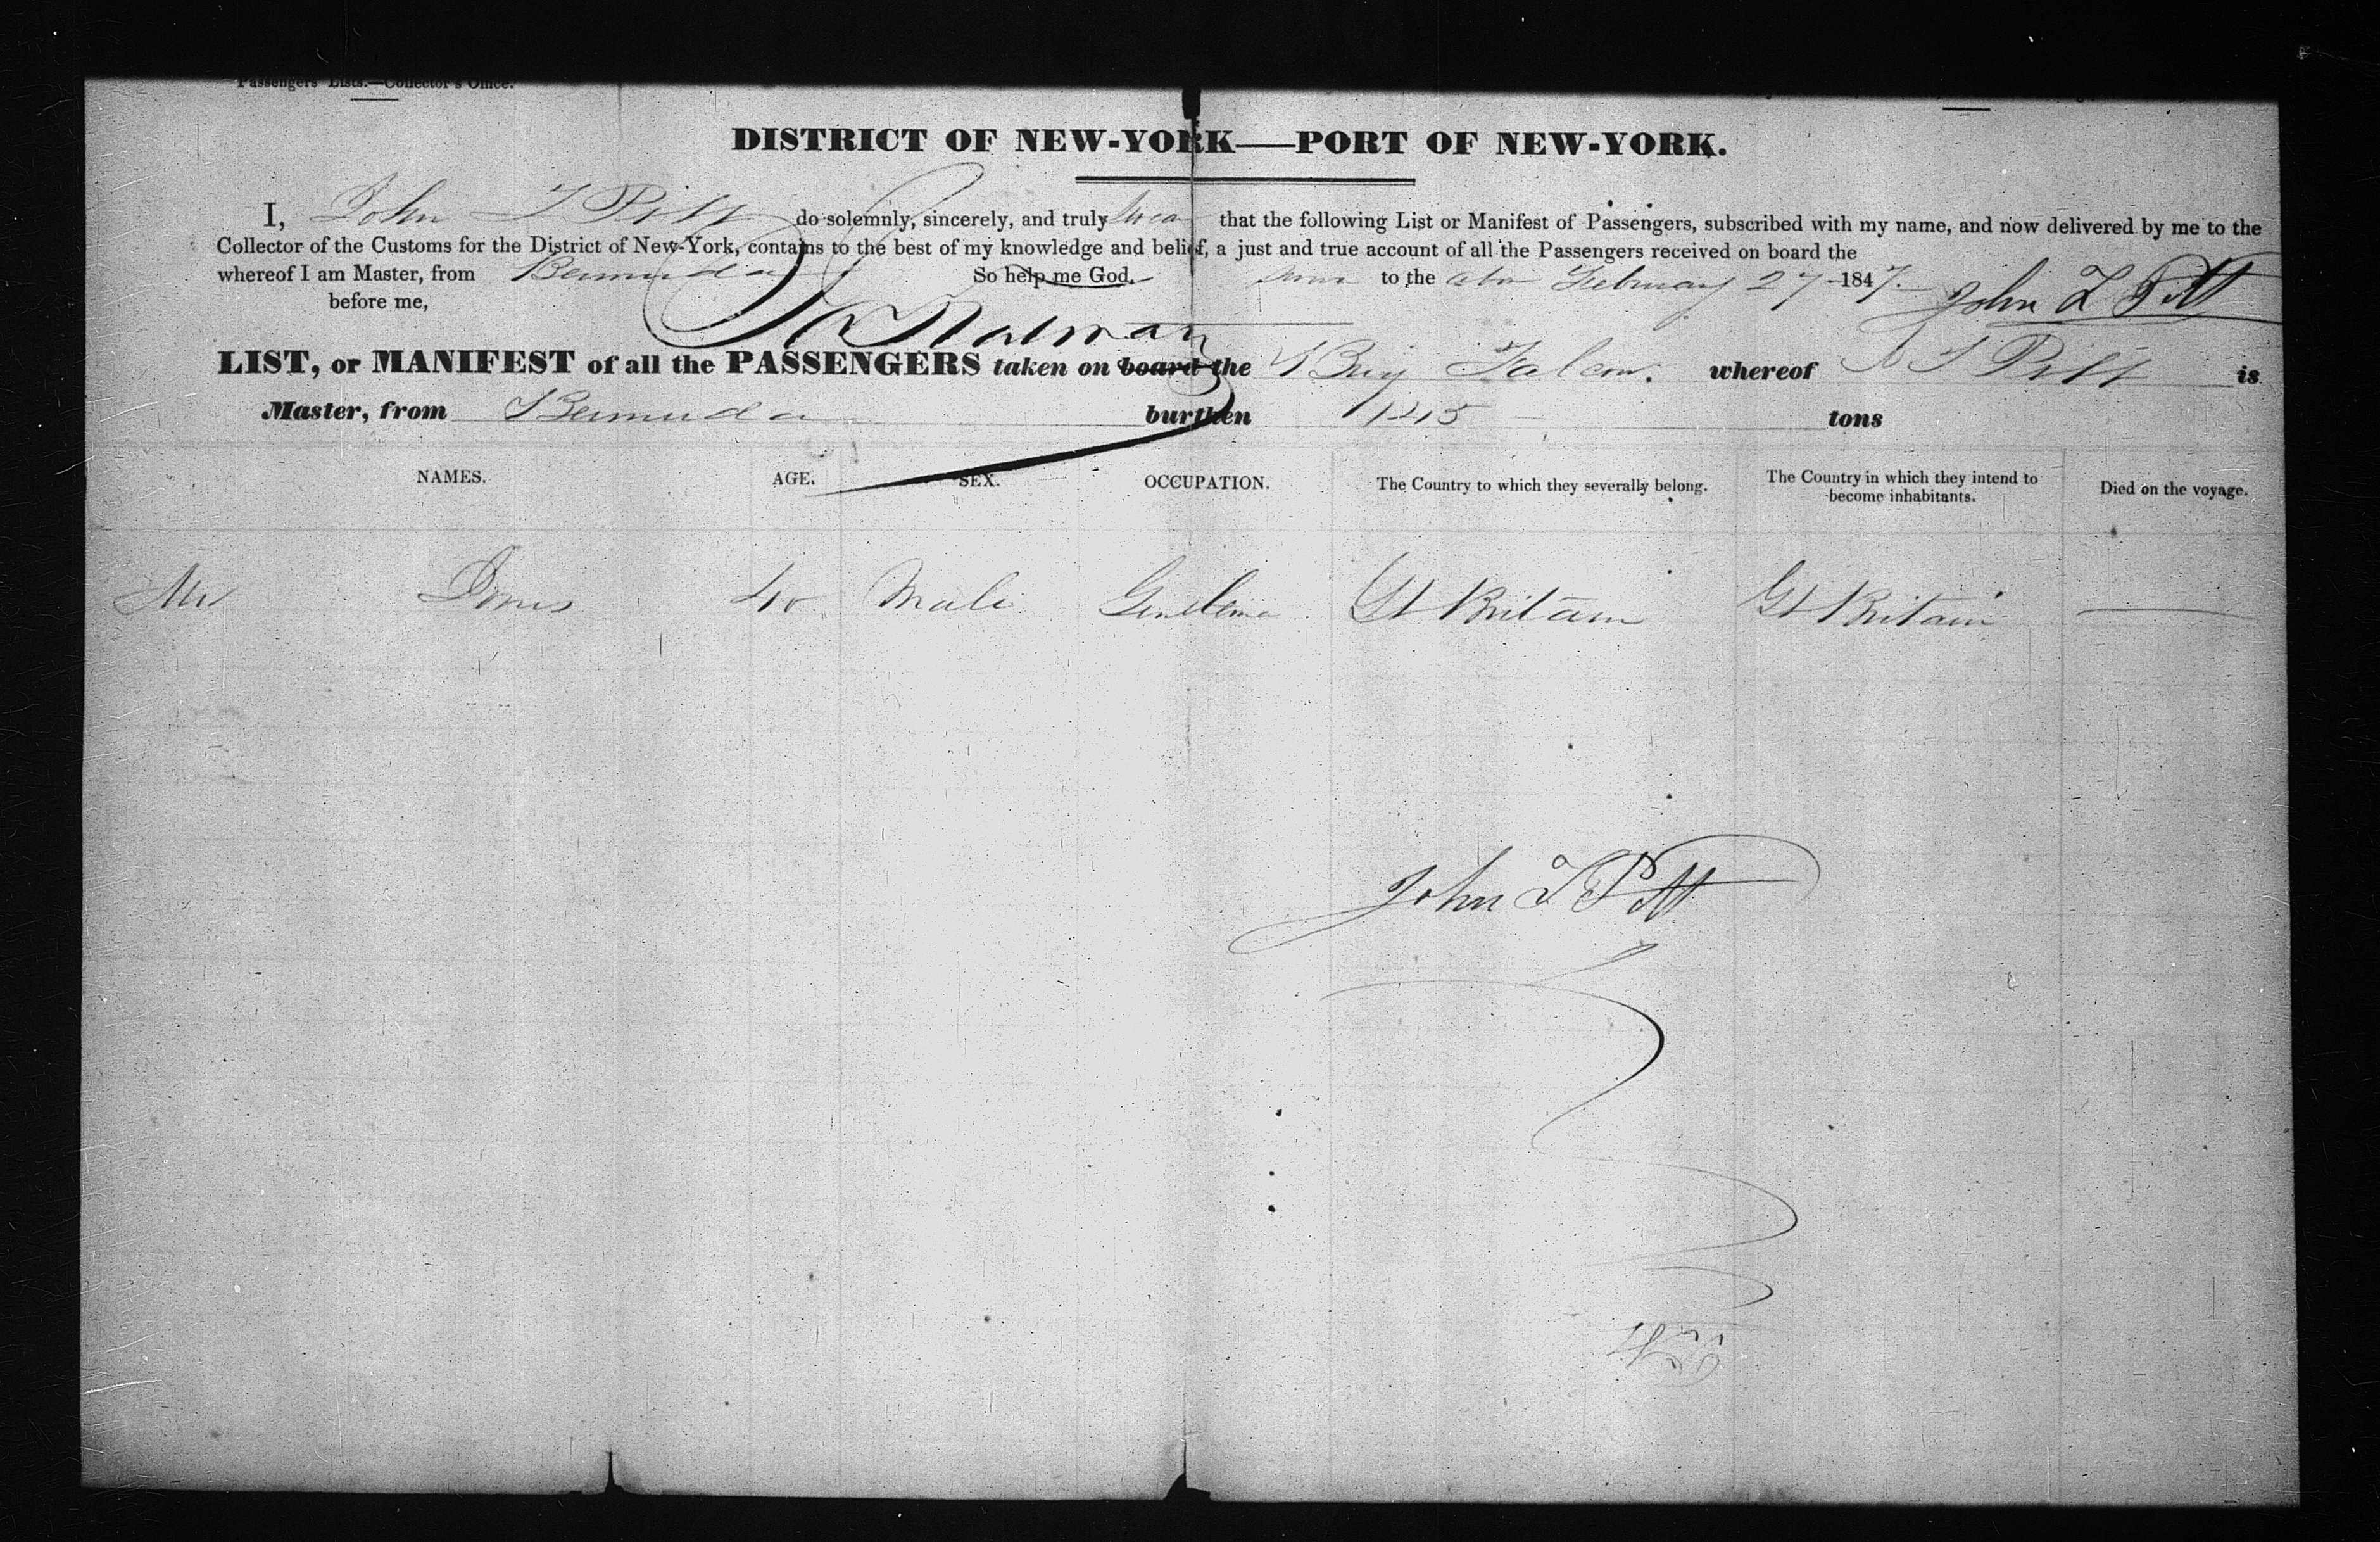 Passengers' Lists.—Collector's Office.
DISTRICT OF NEW-YORK—PORT OF NEW-YORK.
I, John T Pitt do solemnly, sincerely, and truly swear that the following List or Manifest of Passengers, subscribed with my name, and now delivered by me to the
Collector of the Customs for the District of New-York, contains to the best of my knowledge and belief, a just and true account of all the Passengers received on board the
whereof I am Master, from Bermuda So help me God. Sworn to the February 27 1847. John T Pitt
before me,
LIST, or MANIFEST of all the PASSENGERS taken on board the Brig Falcon. whereof T Pitt is
Master, from Bermuda burthen tons
NAMES. AGE. SEX. OCCUPATION. The Country to which they severally belong. The Country in which they intend to become inhabitants. Died on the voyage.
Mr 40 Male Gentleman Gt Britain Gt Britain
John T Pitt